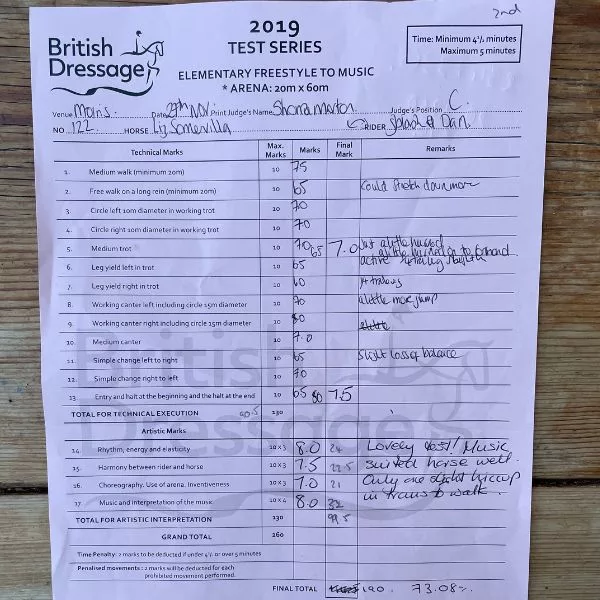 2nd
2019
British
Dressage
TEST SERIES
Time: Minimum 4½ minutes
Maximum 5 minutes
ELEMENTARY FREESTYLE TO MUSIC
* ARENA: 20m x 60m
Venue Morris Date 27th NOV Print Judge's Name Shona Marton Judge's Position C.
NO. 122 HORSE Liz Somervilla RIDER Dan
Technical Marks Max. Marks Marks Final Mark Remarks
1. Medium walk (minimum 20m) 10 75
2. Free walk on a long rein (minimum 20m) 10 65 Could stretch down more
3. Circle left 10m diameter in working trot 10 70
4. Circle right 10m diameter in working trot 10 70
5. Medium trot 10 70 65 7.0 a little hurried
6. Leg yield left in trot 10 65 active
7. Leg yield right in trot 10 60
8. Working canter left including circle 15m diameter 10 70 a little more jump
9. Working canter right including circle 15m diameter 10 80
10. Medium canter 10 7.0
11. Simple change left to right 10 65 slight loss of balance
12. Simple change right to left 10 70
13. Entry and halt at the beginning and the halt at the end 10 65 80 7.5
TOTAL FOR TECHNICAL EXECUTION 90.5 130
Artistic Marks
14. Rhythm, energy and elasticity 10 x 3 8.0 24 Lovely test! Music
15. Harmony between rider and horse 10 x 3 7.5 22.5 suited horse well.
16. Choreography. Use of arena. Inventiveness 10 x 3 7.0 21 Only one slight hiccup
17. Music and interpretation of the music 10 x 4 8.0 32 in trans to walk.
TOTAL FOR ARTISTIC INTERPRETATION 130 99.5
GRAND TOTAL 260
Time Penalty: 2 marks to be deducted if under 4½ or over 5 minutes
Penalised movements: 2 marks will be deducted for each
prohibited movement performed.
FINAL TOTAL 190. 73.08%.
British
Dressage